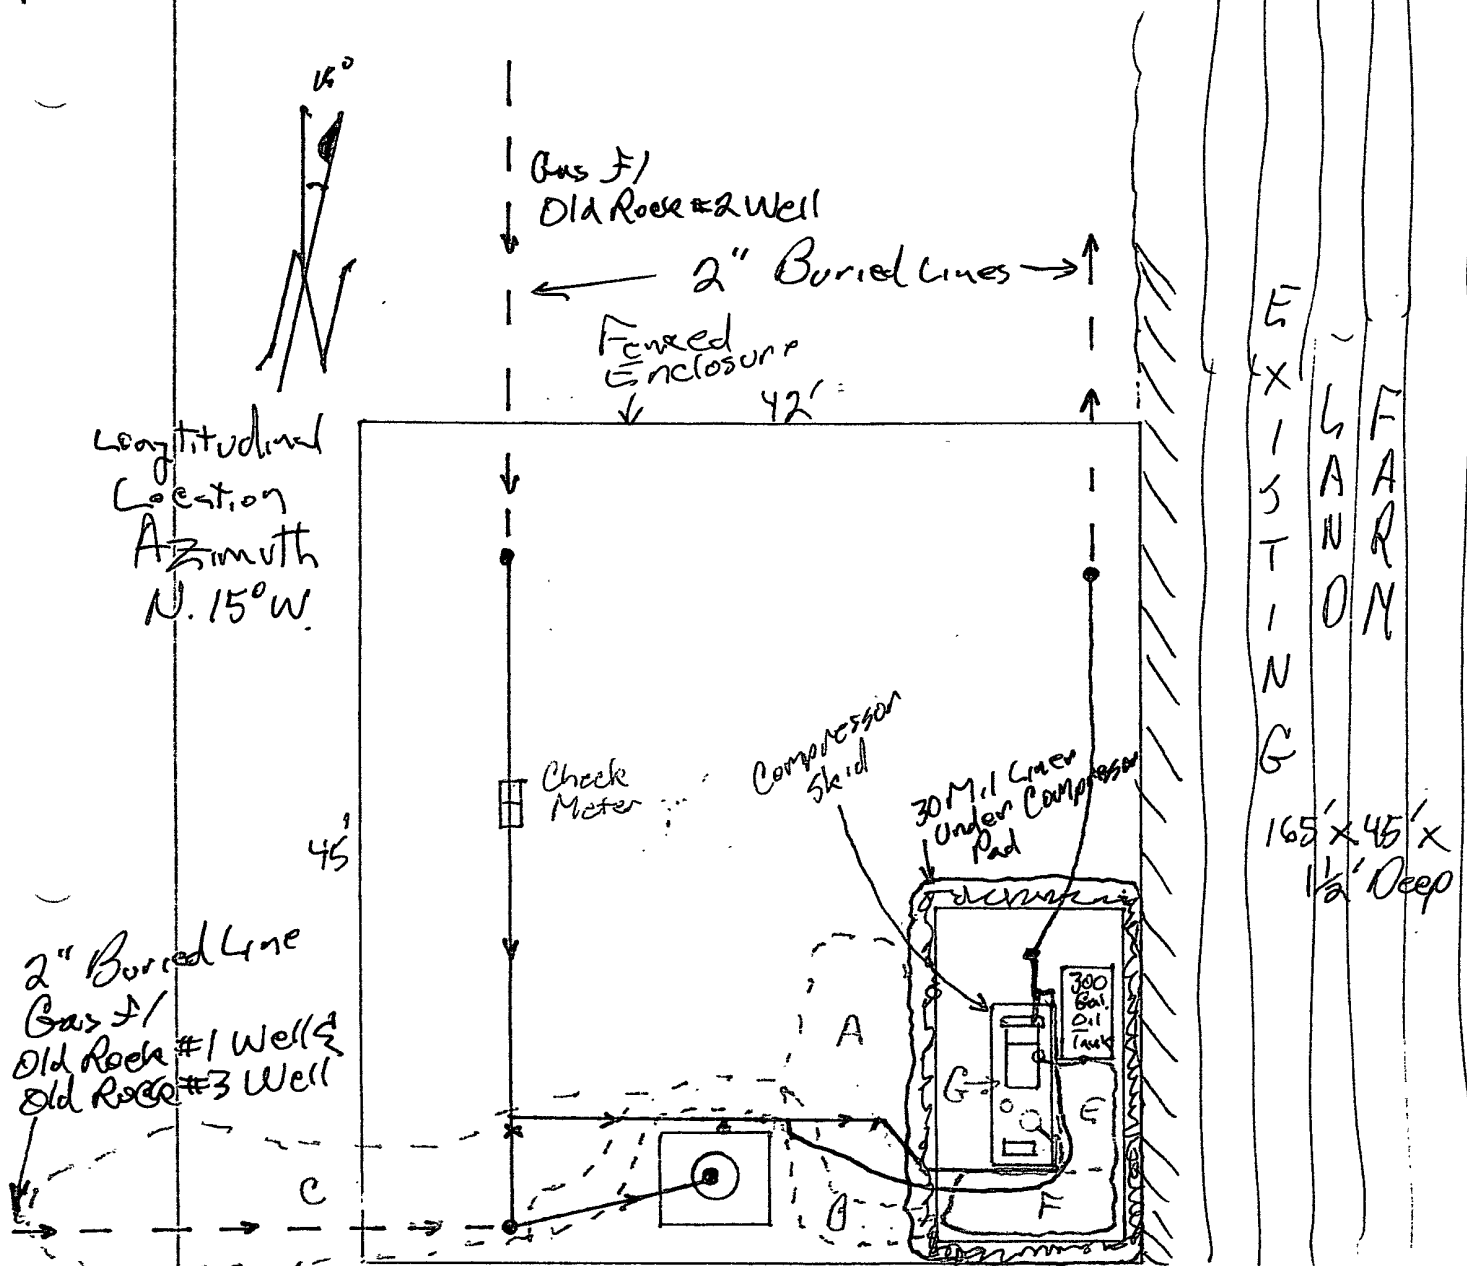 15°
Gas f/
Old Rock #2 Well
2" Buried Lines
Fenced
Enclosure
42'
Longtitudinal
Location
Azimuth
N. 15° W.
N
EXISTING
LAND
FARM
165' x 45' x
1 1/2' Deep
Check
Meter
Compressor
Skid
30 Mil Liner
Under Compressor
Pad
45'
2" Buried Line
Gas f/
Old Rock #1 Well &
Old Rock #3 Well
300
Gal.
Oil
Tank
A
G
E
C
B
F